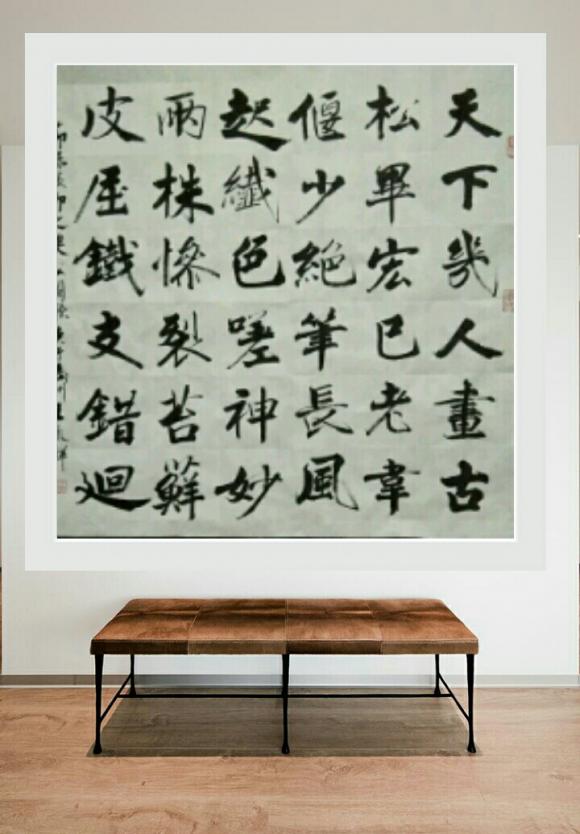 天下幾人畫古
松畢宏已老韋
偃少絕筆長風
起纖色嗟神妙
兩株慘裂苔蘚
皮屈鐵支錯迴